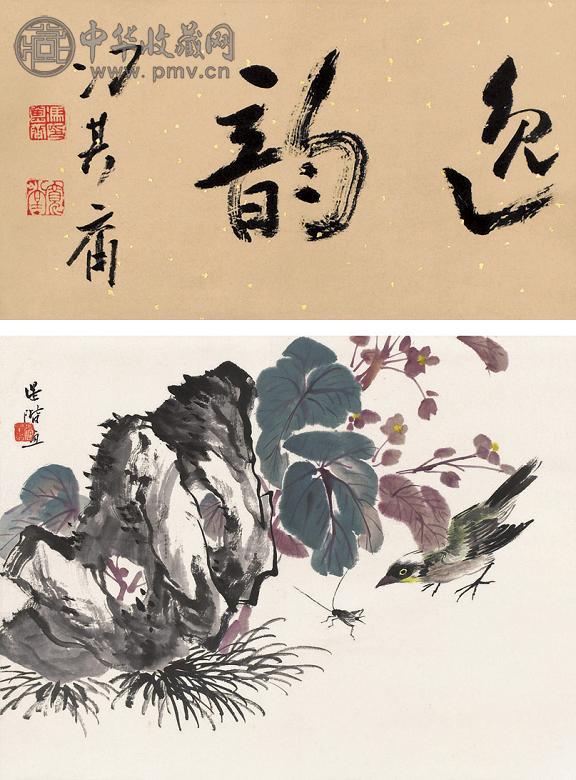 中华收藏网
www.pmv.cn
逸韵
冯其庸
星階